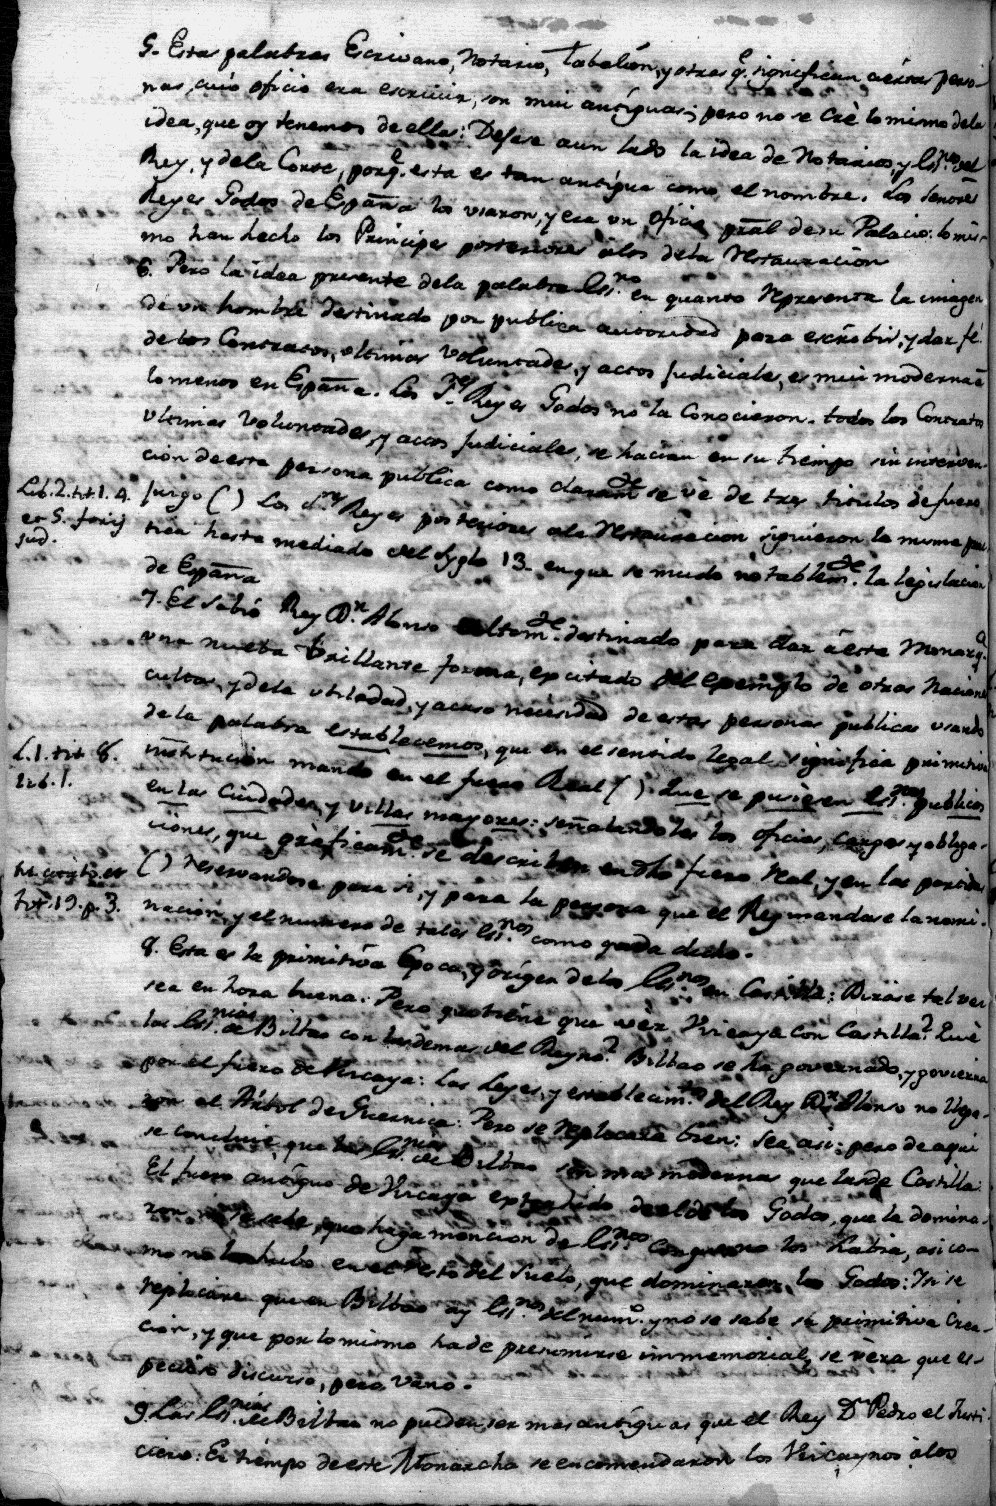 5. Estas palabras Escrivano, Notario, Tabelión, y otras q.e significan áestas perso-
nas, cuio oficio era escrivir, son mui antiguas; pero no se crè lo mismo dela
idea, que oy tenemos de ellas: Dejese aun lado la idea de Notarios, y Ess.nos del
Rey, y dela Corte, porq.e esta es tan antigua como el nombre. Los Señores
Reyes Godos de España los usaron, y era un oficio pral de su Palacio: lo mis-
mo han hecho los Principes posteriores álos dela Restauracion
6. Pero la idea presente dela palabra Ess.no en quanto representa la imagen
de un hombre destinado por publica autoridad para escribir, y dar fé
de los Contratos, ultimas voluntades, y actos Judiciales, es mui moderna á
lo menos en España. Los S.res Reyes Godos no la Conocieron. todos los Contratos
ultimas voluntades, y actos Judiciales, se hacian en su tiempo sin interven-
cion de esta persona publica como claram.te se vè de tres titulos de fuero
Lib. 2. tit 1. 4.
et 5. forij
jud.
Juzgo ( ) Los d.hos Reyes posteriores ala Restauracion siguieron la misma
tica hasta mediado del Syglo 13. en que se mudo notablem.te la legislacion
de España
7. El sabio Rey D.n Alonso destinado para dar áesta Monarq.a
una nueva brillante forma, excitado del exemplo de otras Naciones
cultas, y dela utilidad, y acaso necesidad de estas personas publicas usando
de la palabra establecemos, que en el sentido legal significa primitiva
L. 1. tit 8.
Lib. 1.
institucion mando en el fuero Real ( ) Que se pusiesen Ess.nos publicos
en las Ciudades, y villas mayores: señalandoles los oficios, cargos y obliga-
ciones, que graficam.te se describen en dho fuero Real, y en las partidas
tit. 19. p. 3.
( ) reservandose para si, y para la persona que el Rey mandase la nomi-
nacion, y el numero de tales Ess.nos como queda dicho.
8. Esta es la primitiva Epoca, y origen delos Ess.nos en Castilla: Dirase tal vez
sea en hora buena. Pero que tiene que vèr Vizcaya con Castilla? Què
las Ess.nias de Bilbao con las demas del Reyno? Bilbao se ha governado, y govierna
por el fuero de Vizcaya: las Leyes, y establecim.tos del Rey D.n Alonso no llega-
ron al Arbol de Guernica: Pero se replicara bien: sea asi: pero de aqui
se concluie, que las Ess.nias de Bilbao son mas modernas que las de Castilla:
El fuero antiguo de Vizcaya de los Godos, que la domina-
ron se sabe, que haga mencion de Ess.nos no los habia, asi co-
mo no los hubo en el resto del Suelo, que dominaron los Godos: Si se
replicare que en Bilbao ay Ess.nos del num.o y no se sabe su primitiva Crea-
cion, y que por lo mismo ha de presumirse immemorial, se vera que es-
pecioso discurso, pero vano.
9. Las Ess.nias de Bilbao no pueden ser mas antiguas que el Rey D.n Pedro el Justi-
ciero: En tiempo de este Monarcha se encomendaron los Vizcaynos álos